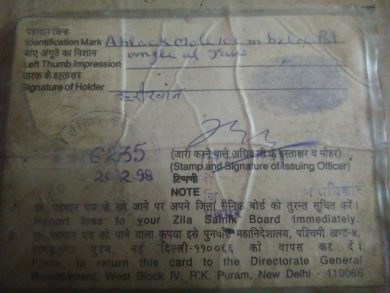 पहचान चिन्ह
Identification Mark A black mole 1 cm below Rt
बांए अंगूठे का निशान angle of Jaw
Left Thumb Impression
धारक के हस्ताक्षर
Signature of Holder
6235 (जारी करने वाले अधिकारी के हस्ताक्षर व मोहर)
(Stamp and Signature of Issuing Officer)
20.2.98 टिप्पणी
NOTE
पहचान पत्र के खो जाने पर अपने जिला सैनिक बोर्ड को तुरन्त सूचित करें।
Report loss to your Zila Sainik Board Immediately.
पहचान पत्र को पाने वाला कृपया इसे पुनर्वास महानिदेशालय, पश्चिमी खण्ड-४,
रामकृष्ण पुरम, नई दिल्ली-११००६६ को वापस कर दें।
Please to return this card to the Directorate General
Resettlement, West Block IV, R.K. Puram, New Delhi - 110066